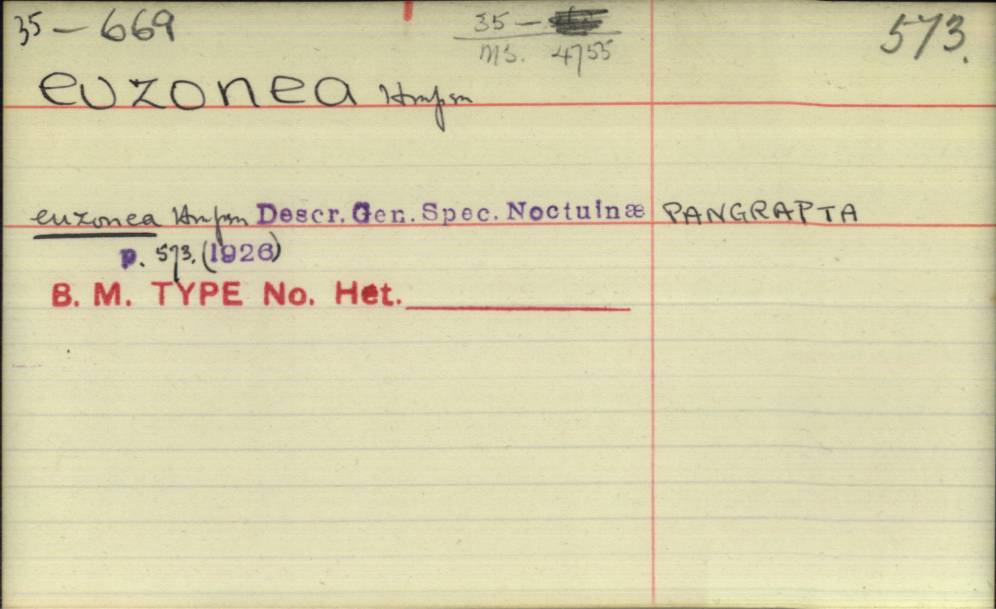 35 — 669
35 —
MS. 4755
573.
euzonea Hmpsn
euzonea Hmpsn Descr. Gen. Spec. Noctuinæ PANGRAPTA
p. 573. (1926)
B. M. TYPE No. Het.